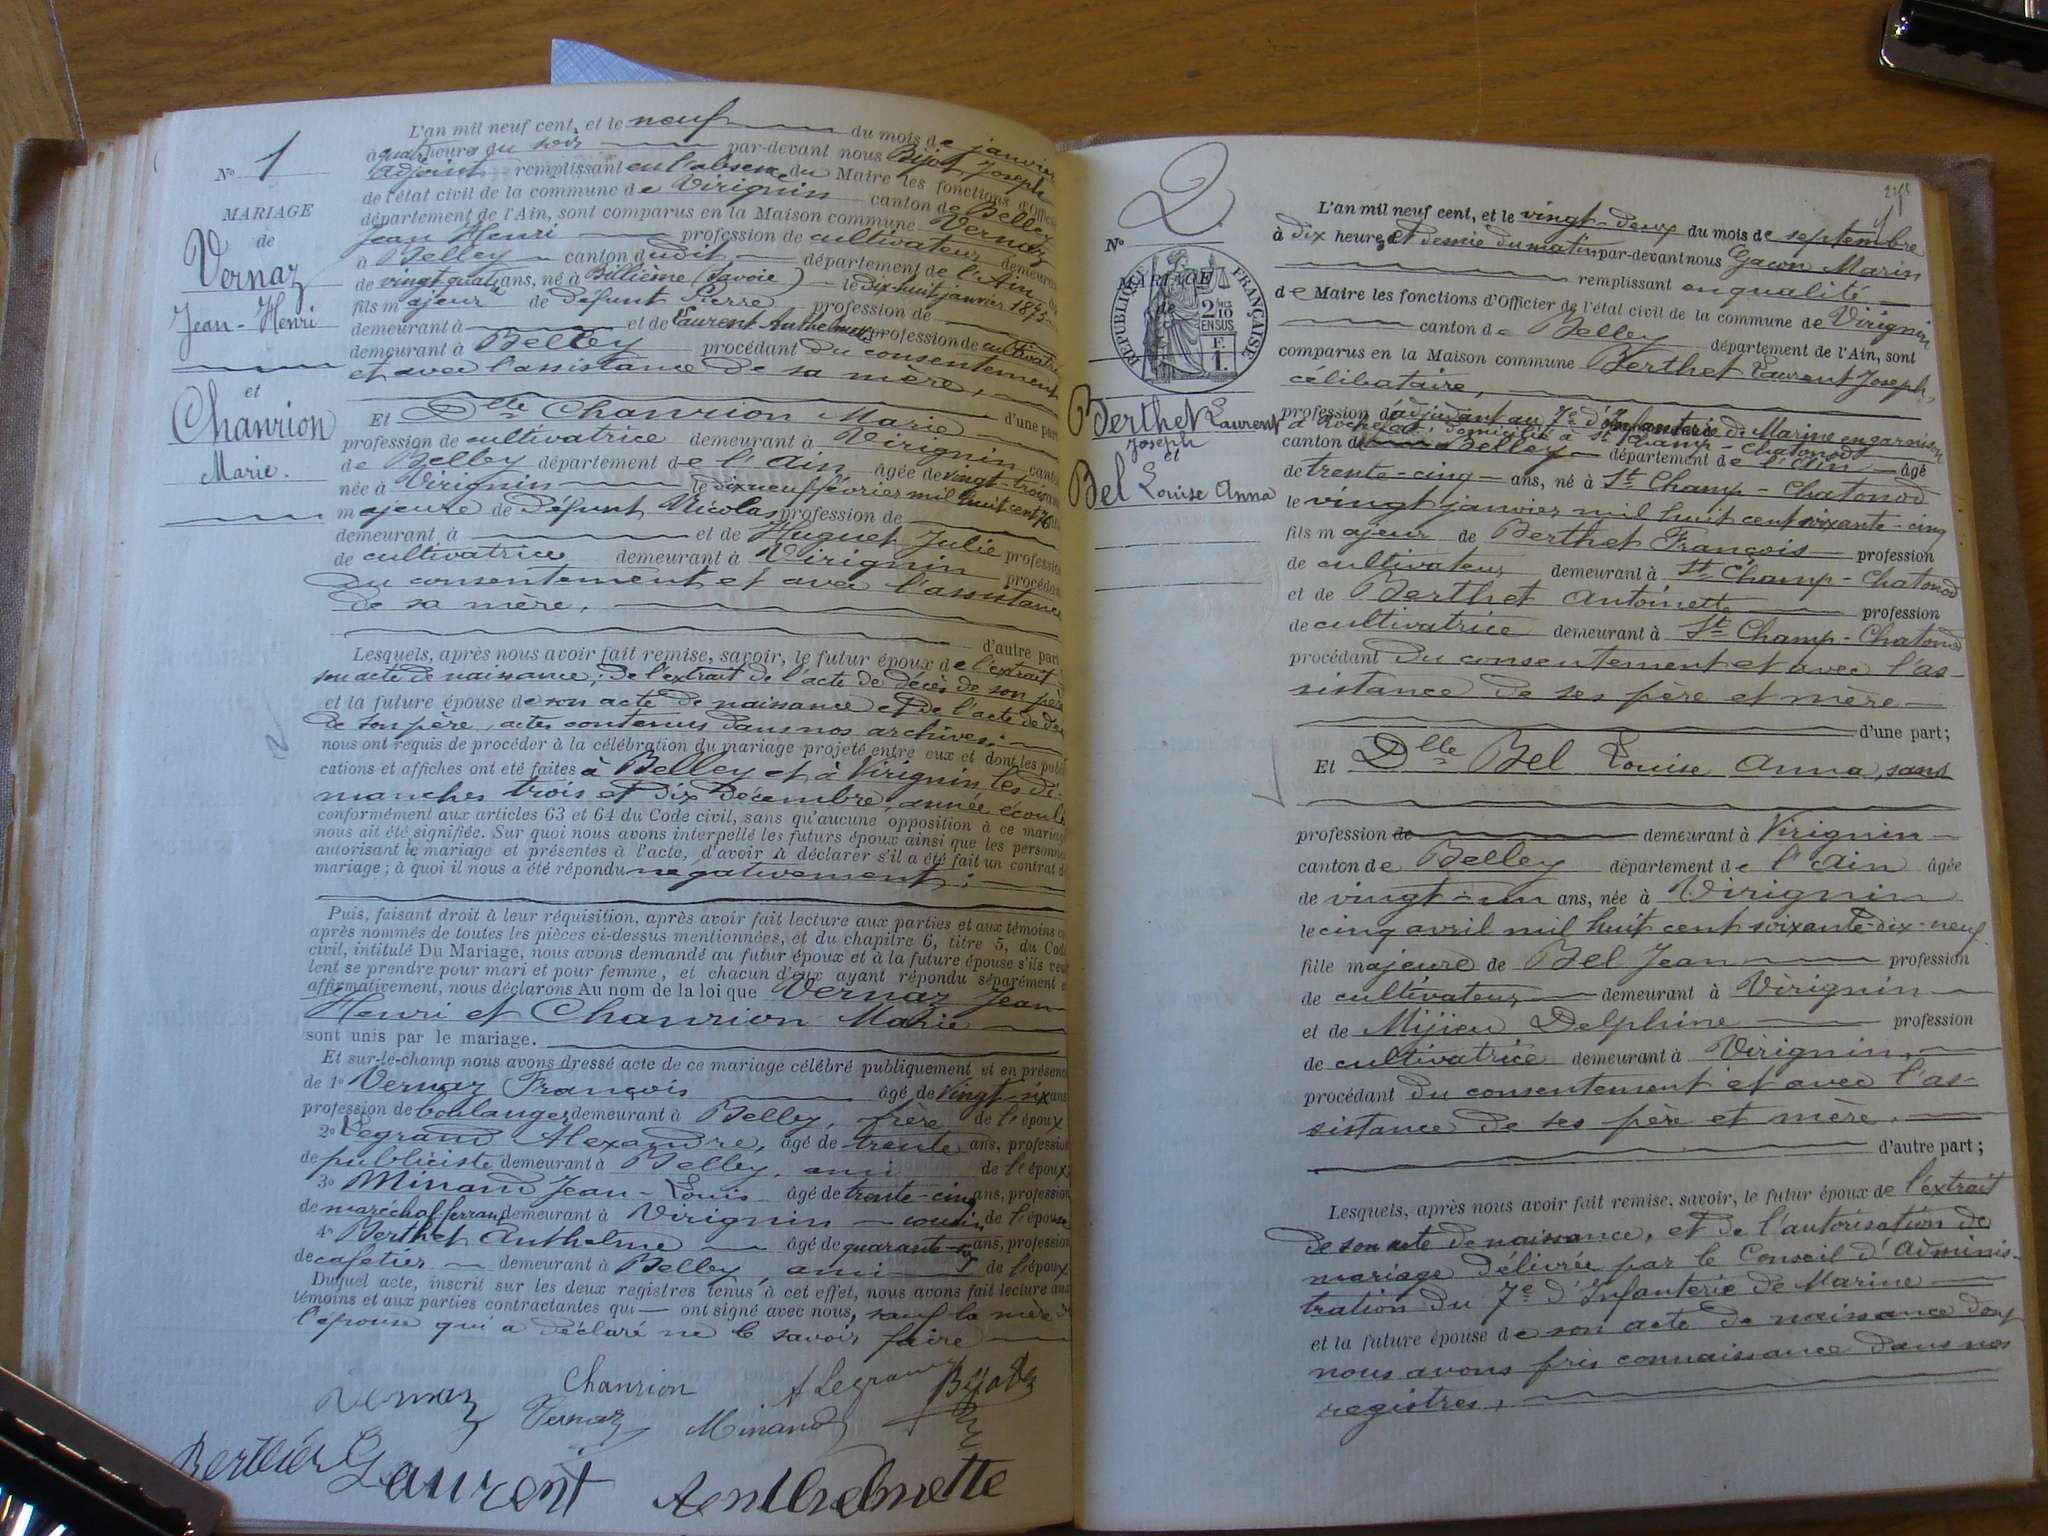 N° 1
MARIAGE
de
Vernaz
Jean-Henri
et
Chanrion
Marie.
L'an mil neuf cent, et le neuf du mois de janvier
à quatre heures du soir par-devant nous Bijot Joseph
adjoint remplissant en l'absence du Maire les fonctions d'Officier
de l'état civil de la commune de Virignin canton de Belley
département de l'Ain, sont comparus en la Maison commune Vernaz
Jean Henri profession de cultivateur demeurant
à Belley canton dudit département de l'Ain
de vingt quatre ans, né à Billième (Savoie) le dix huit janvier 1875
fils majeur de défunt Pierre profession de
demeurant à et de Laurent Anthelmette profession de cultivatrice
demeurant à Belley procédant du consentement
et avec l'assistance de sa mère,
d'une part
Et Dlle Chanrion Marie
profession de cultivatrice demeurant à Virignin canton
de Belley département de l'Ain âgée de vingt-trois ans
née à Virignin le dix neuf février mil huit cent 76
majeure de défunt Nicolas profession de
demeurant à et de Huguet Julie profession
de cultivatrice demeurant à Virignin procédant
du consentement et avec l'assistance
de sa mère,
d'autre part
Lesquels, après nous avoir fait remise, savoir, le futur époux de l'extrait de
son acte de naissance; de l'extrait de l'acte de décès de son père
et la future épouse de son acte de naissance et de l'acte de décès
de son père, actes contenus dans nos archives;
nous ont requis de procéder à la célébration du mariage projeté entre eux et dont les publi
cations et affiches ont été faites à Belley et à Virignin les di-
manches trois et dix décembre, année écoulée
conformément aux articles 63 et 64 du Code civil, sans qu'aucune opposition à ce mariage
nous ait été signifiée. Sur quoi nous avons interpellé les futurs époux ainsi que les personnes
autorisant le mariage et présentes à l'acte, d'avoir à déclarer s'il a été fait un contrat de
mariage; à quoi il nous a été répondu négativement;
Puis, faisant droit à leur réquisition, après avoir fait lecture aux parties et aux témoins ci
après nommés de toutes les pièces ci-dessus mentionnées, et du chapitre 6, titre 5, du Code
civil, intitulé Du Mariage, nous avons demandé au futur époux et à la future épouse s'ils veu
lent se prendre pour mari et pour femme, et chacun d'eux ayant répondu séparément et
affirmativement, nous déclarons Au nom de la loi que Vernaz Jean
Henri et Chanrion Marie
sont unis par le mariage.
Et sur-le-champ nous avons dressé acte de ce mariage célébré publiquement et en présence
de 1° Vernaz François âgé de vingt-six ans
profession de boulanger demeurant à Belley, frère de l'époux
2° Legrand Alexandre, âgé de trente ans, profession
de publiciste demeurant à Belley, ami de l'époux;
3° Minand Jean-Louis âgé de trente-cinq ans, profession
de maréchal-ferrant demeurant à Virignin cousin de l'épouse
4° Berthet Anthelme âgé de quarante ans, profession
de cafetier demeurant à Belley, ami de l'époux
Duquel acte, inscrit sur les deux registres tenus à cet effet, nous avons fait lecture aux
témoins et aux parties contractantes qui ont signé avec nous, sauf la mère de
l'épouse qui a déclaré ne le savoir faire
Vernaz Chanrion A Legrand Bijot
Vernaz Minand
Laurent Anthelmette
N° 2
MARIAGE
de
RÉPUBLIQUE FRANÇAISE
2 DES
10
EN SUS
F.
1.
Berthet Laurent
Joseph
et
Bel Louise Anna
L'an mil neuf cent, et le vingt-deux du mois de septembre
à dix heures et demie du matin par-devant nous Gacon Marin
remplissant en qualité
de Maire les fonctions d'Officier de l'état civil de la commune de Virignin
canton de Belley département de l'Ain, sont
comparus en la Maison commune Berthet Laurent Joseph,
célibataire,
profession d'adjudant au 7e d'Infanterie de Marine en garnison
à Rochefort domicilié à St Champ-Chatonod
canton de Belley département de l'Ain âgé
de trente-cinq ans, né à St Champ-Chatonod
le vingt janvier mil huit cent soixante-cinq
fils majeur de Berthet François profession
de cultivateur demeurant à St Champ-Chatonod
et de Berthet Antoinette profession
de cultivatrice demeurant à St Champ-Chatonod
procédant du consentement et avec l'as-
sistance de ses père et mère
d'une part;
Et Dlle Bel Louise Anna, sans
profession de demeurant à Virignin
canton de Belley département de l'Ain âgée
de vingt-un ans, née à Virignin
le cinq avril mil huit cent soixante-dix-neuf
fille majeure de Bel Jean profession
de cultivateur demeurant à Virignin
et de Mijieu Delphine profession
de cultivatrice demeurant à Virignin,
procédant du consentement et avec l'as-
sistance de ses père et mère.
d'autre part;
Lesquels, après nous avoir fait remise, savoir, le futur époux de l'extrait
de son acte de naissance, et de l'autorisation de
mariage délivrée par le Conseil d'Adminis-
tration du 7e d'Infanterie de Marine
et la future épouse de son acte de naissance dont
nous avons pris connaissance dans nos
registres,